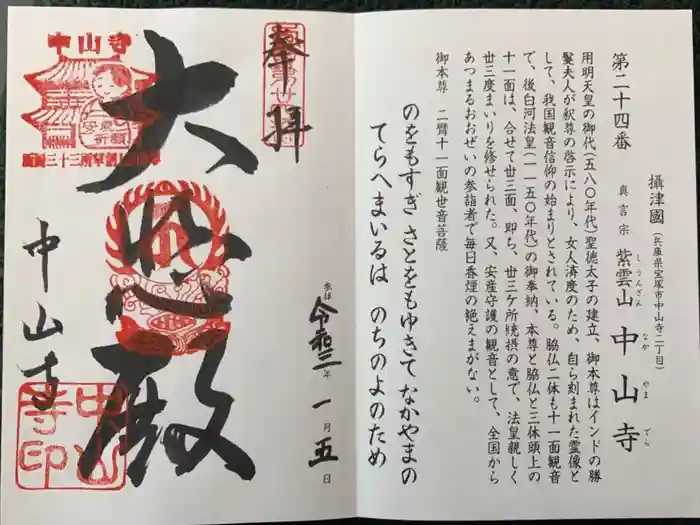 攝津國(兵庫県宝塚市中山寺二丁目)
第二十四番 真言宗 紫雲山 中山寺
しうんざん なかやまでら
用明天皇の御代(五八〇年代)聖徳太子の建立、御本尊はインドの勝
鬘夫人が釈尊の啓示により、女人済度のため、自ら刻まれた霊像と
して、我国観音信仰の始まりとされている。脇仏二体も十一面観音
で、後白河法皇(一一五〇年代)の御奉納、本尊と脇仏と三体頭上の
十一面は、合せて丗三面、即ち、丗三ケ所統摂の意で、法皇親しく
丗三度まいりを修せられた。又、安産守護の観音として、全国から
あつまるおおぜいの参詣者で毎日香煙の絶えまがない。
御本尊 二臂十一面観世音菩薩
のをもすぎ さとをもゆきて なかやまの
てらへまいるは のちのよのため
奉拝
参拝 令和三年一月五日
大悲殿
中山寺
中山寺
安産祈願
中山寺印